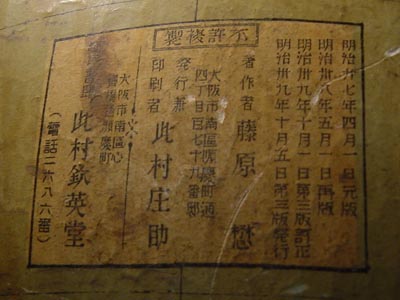 明治卅七年四月一日元版
明治卅八年五月一日再版
明治卅九年十月一日第三版訂正
明治卅九年十月五日第三版発行
不許複製
著作者 藤原 懋
大阪市南區順慶町通
四丁目百七十九番邸
発行兼
印刷者 此村庄助
大阪市南區心
齋橋通順慶町
此村欽英堂
(電話二六八六番)